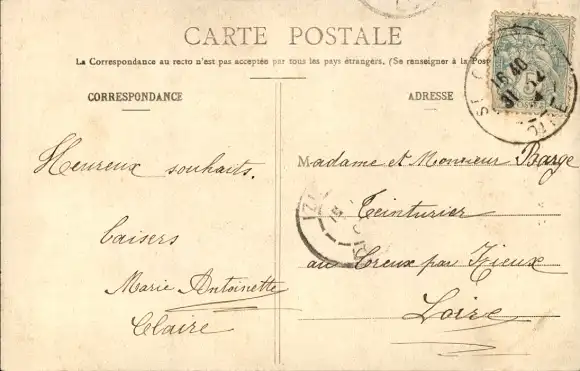 CARTE POSTALE
La Correspondance au recto n'est pas acceptée par tous les pays étrangers. (Se renseigner à la Pos
CORRESPONDANCE
Heureux souhaits.
baisers
Marie Antoinette
Claire
ADRESSE
Madame et Monsieur Barge
Teinturier
au Creux par Izieux
Loire
16 40
31
5
POSTES
IZI